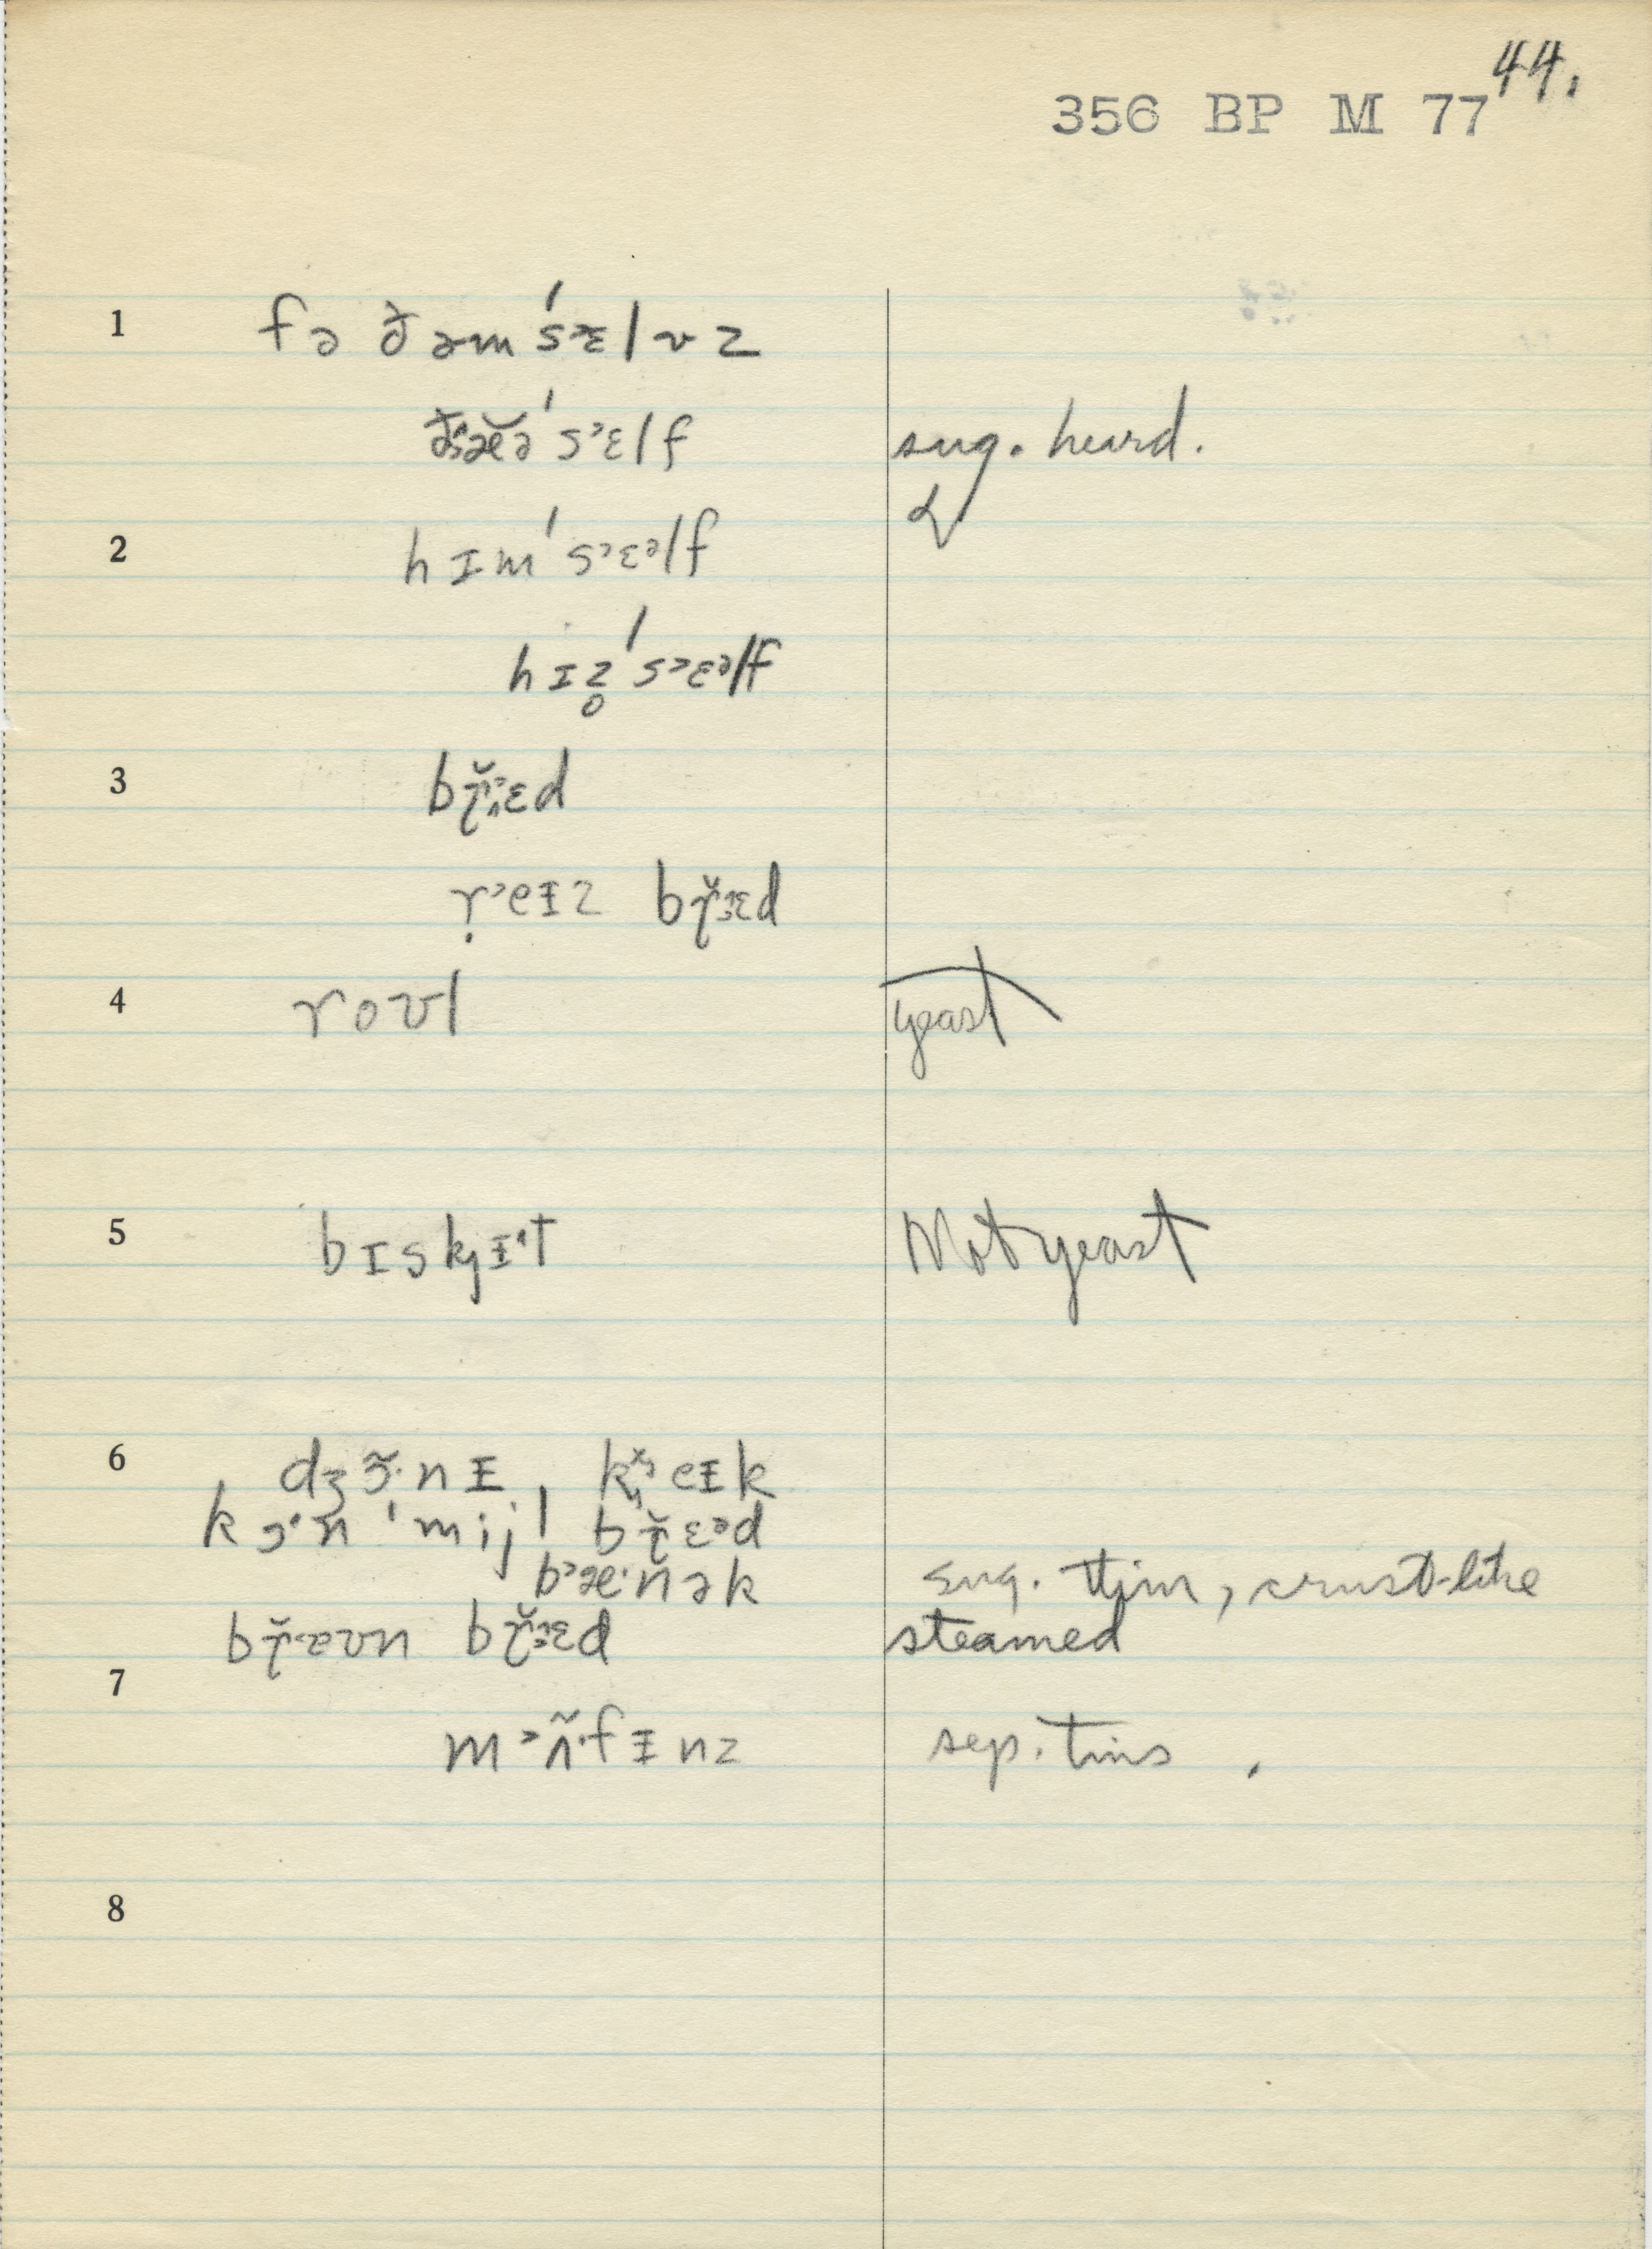 44.
356 BP M 77
1 fə ðəm ˈsɛ˃lvz
ðæ̆ə ˈs˃ɛlf sug. heard.
2 hɪm ˈs˃ɛᵊlf
hɪz̥ ˈs˃ɛᵊlf
3 bɹ̆ɛd
r̩˃eɪz bɹ̆ɛd
4 roʊl yeast
5 bɪskjɪ˂t Not yeast
6 dʒɜ̃·nɪ, keɪk
kɔ˂n ˈmijl bɹ̆ɛᵊd
b˃æ·n̆ək sug. thin, crust-like
bɹ̆aʊn bɹ̆ɛd steamed
7 m˃ʌ̃·fɪnz sep. tins.
8